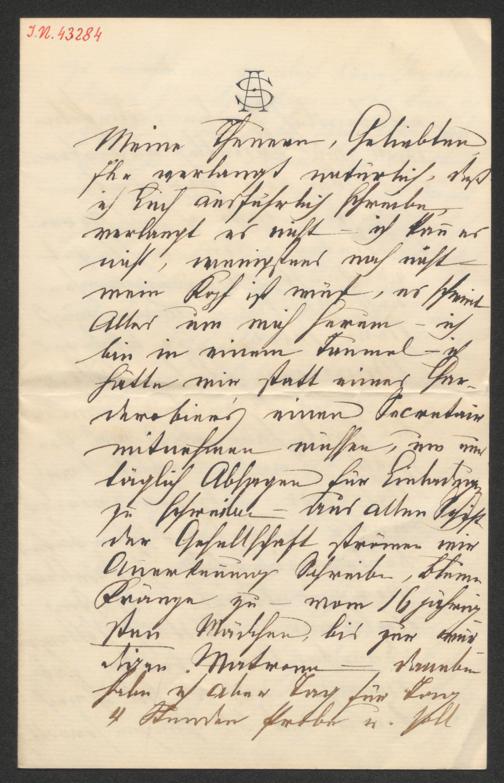 J.N. 43284
AS
Meine Theuern, Geliebten
Ihr verlangt natürlich, daß
ich Euch ausführlich schreibe,
verlangt es nicht – ich kann es
nicht, wenigstens noch nicht –
mein Kopf ist wüst, es schwirrt
Alles um mich herum – ich
bin in einem Taumel – ich
hätte mir statt eines Gar-
derobiers einen Secretair
mitnehmen müssen, um nur
täglich Absagen für Einladungen
zu schreiben – aus allen
der Gesellschaft strömen mir
Anerkennung Schreiben, Blumen
Kränze zu – vom 16 jährig
sten Mädchen bis zur wür
digen Matrone – daneben
habe ich aber Tag für Tag
4 Stunden Probe u. soll